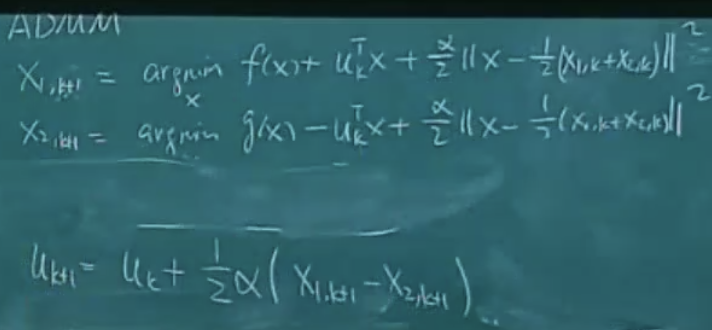 ADMM
x₁,ₖ₊₁ = argmin_x f(x) + uₖᵀx + α/2 ||x - 1/2(x₁,ₖ + x₂,ₖ)||²
x₂,ₖ₊₁ = argmin g(x) - uₖᵀx + α/2 ||x - 1/2(x₁,ₖ + x₂,ₖ)||²
uₖ₊₁ = uₖ + 1/2 α(x₁,ₖ₊₁ - x₂,ₖ₊₁)